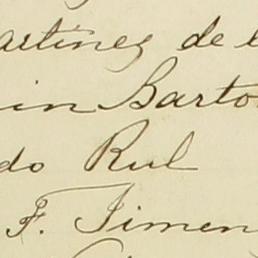 artinez de l
in Barto
do Rul
F. Jimen